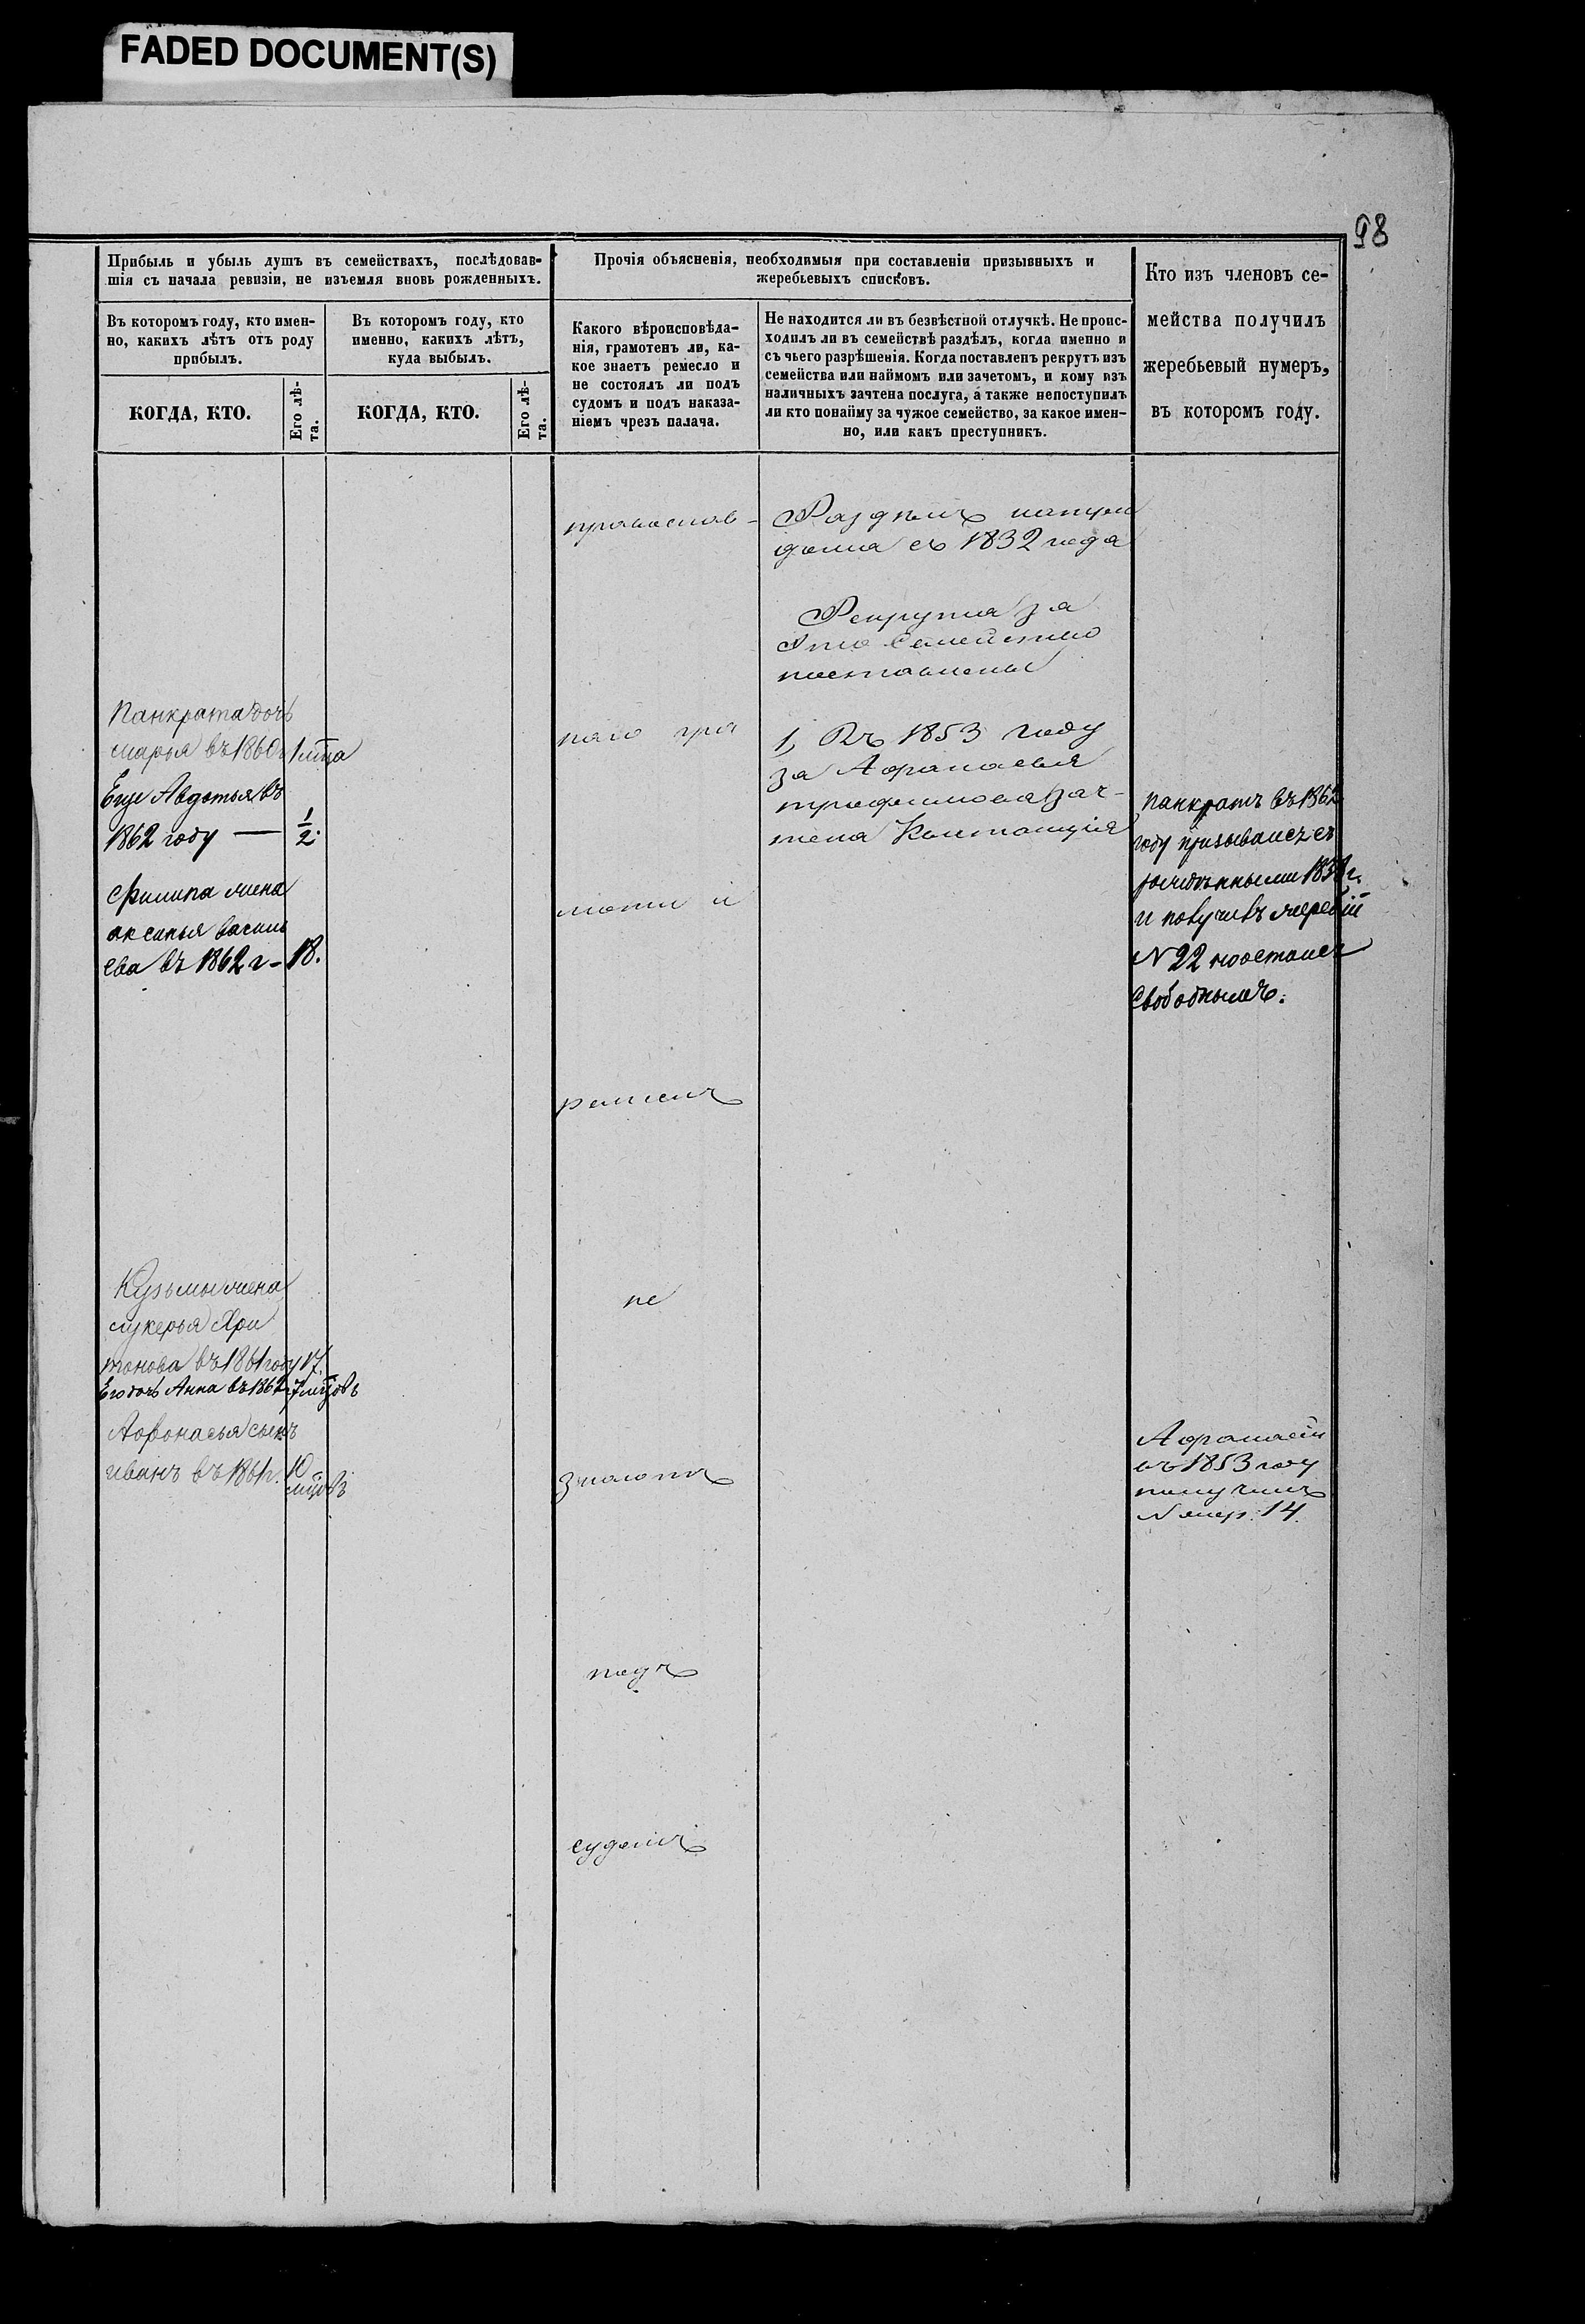 FADED DOCUMENT(S)
98
Прибыль и убыль душъ въ семействахъ, послѣдовав-
шія съ начала ревизіи, не изъемля вновь рожденныхъ.
Въ которомъ году, кто имен-
но, какихъ лѣтъ отъ роду
прибылъ.
Въ которомъ году, кто
именно, какихъ лѣтъ,
куда выбылъ.
КОГДА, КТО.
Его лѣ-
та.
КОГДА, КТО.
Его лѣ-
та.
Прочія объясненія, необходимыя при составленіи призывныхъ и
жеребьевыхъ списковъ.
Какого вѣроисповѣда-
нія, грамотенъ ли, ка-
кое знаетъ ремесло и
не состоялъ ли подъ
судомъ и подъ наказа-
ніемъ чрезъ палача.
Не находится ли въ безвѣстной отлучкѣ. Не проис-
ходилъ ли въ семействѣ раздѣлъ, когда именно и
съ чьего разрѣшенія. Когда поставленъ рекрутъ изъ
семейства или наймомъ или зачетомъ, и кому изъ
наличныхъ зачтена послуга, а также непоступилъ
ли кто понайму за чужое семейство, за какое имен-
но, или какъ преступникъ.
Кто изъ членовъ се-
мейства получилъ
жеребьевый нумеръ,
въ которомъ году.
Панкрата дочь
марья въ 1860 г 1 мца
Еще Авдотья въ
1862 году — 1/2.
Филипа жена
аксинья василь
ева въ 1862 г - 18.
Кузьмы жена
лукерья Хри
тонова въ 1861 году 17.
Его дочь Анна въ 1862 г 7 мцовъ
Афонасья сынъ
иванъ въ 1861 г. 10
мцовъ
православ-
наго гра
моти и
ремеслъ
не
знаютъ
подъ
судомъ
Раздѣлъ
1832 года
Рекрута за
это Семейство
поставлены
1, Въ 1853 году
за Афанасья
трофимова зач-
тена Квитанція
панкратъ въ 1862
году призывался съ
рожденными 183
и получивъ жеребій
N 22 остался
Свободнымъ.
Афанасій
въ 1853 году
получилъ
N жер. 14.